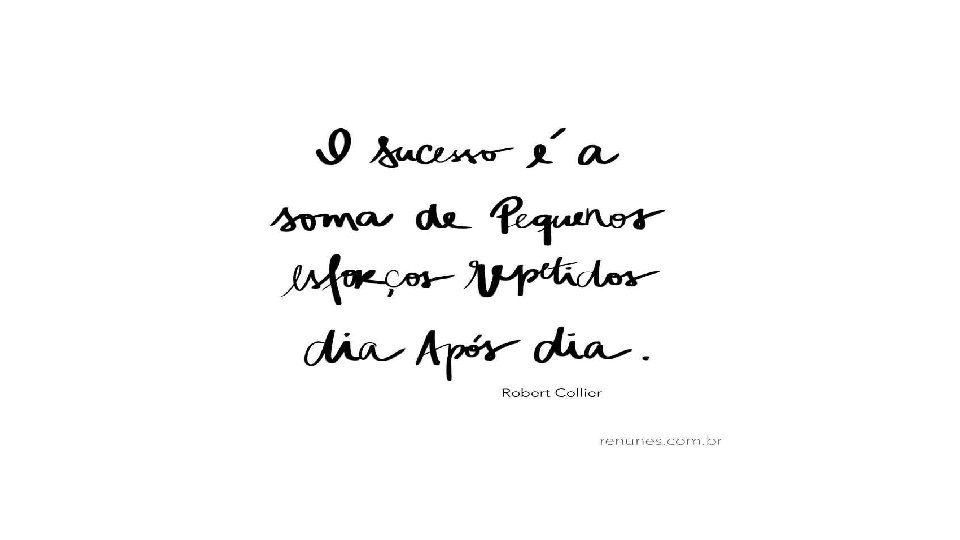 O sucesso é a
soma de Pequenos
esforços repetidos
dia Após dia.
Robert Collier
renunes.com.br